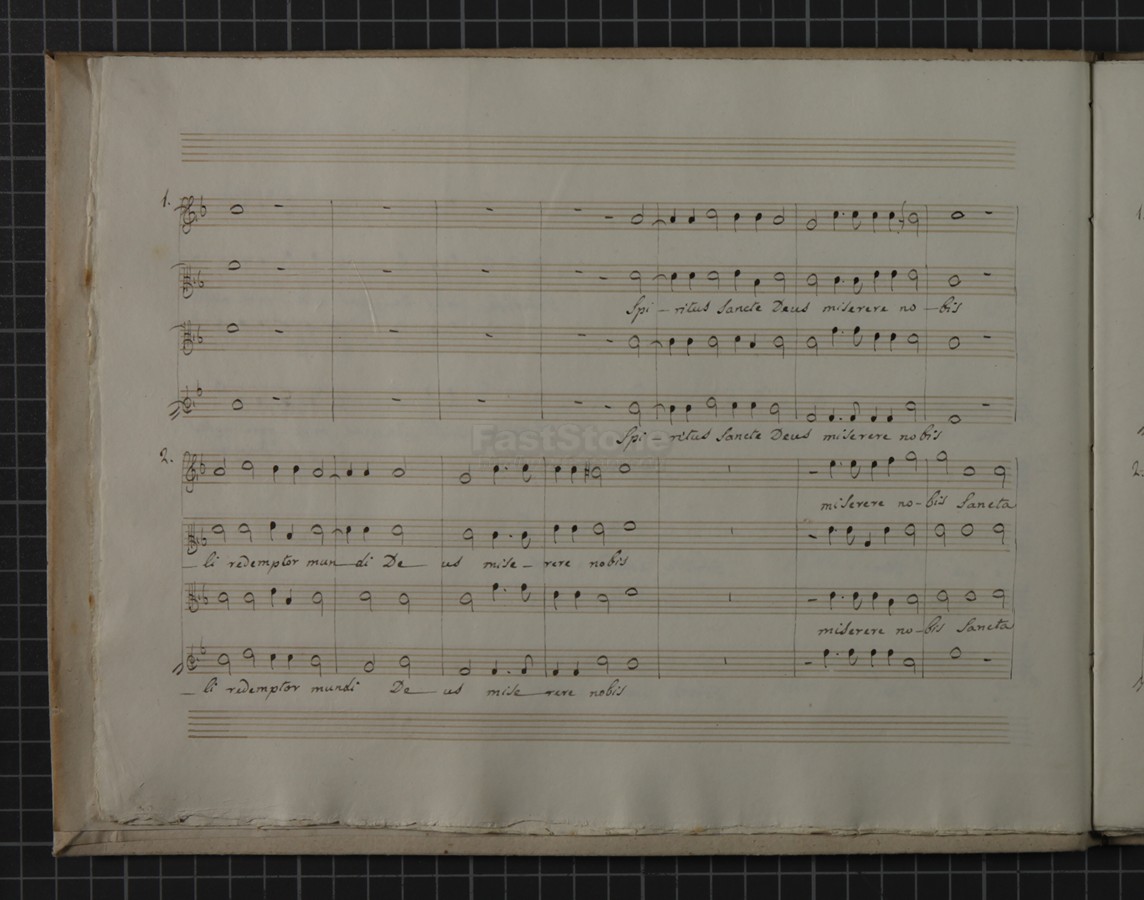 1.
Spi - ritus Sancte Deus miserere no - bis
Spi - ritus Sancte Deus miserere nobis
FastStone
2.
miserere no - bis Sancta
- li redemptor mun - di De - us mise - rere nobis
miserere no - bis Sancta
- li redemptor mundi De - us mise - rere nobis